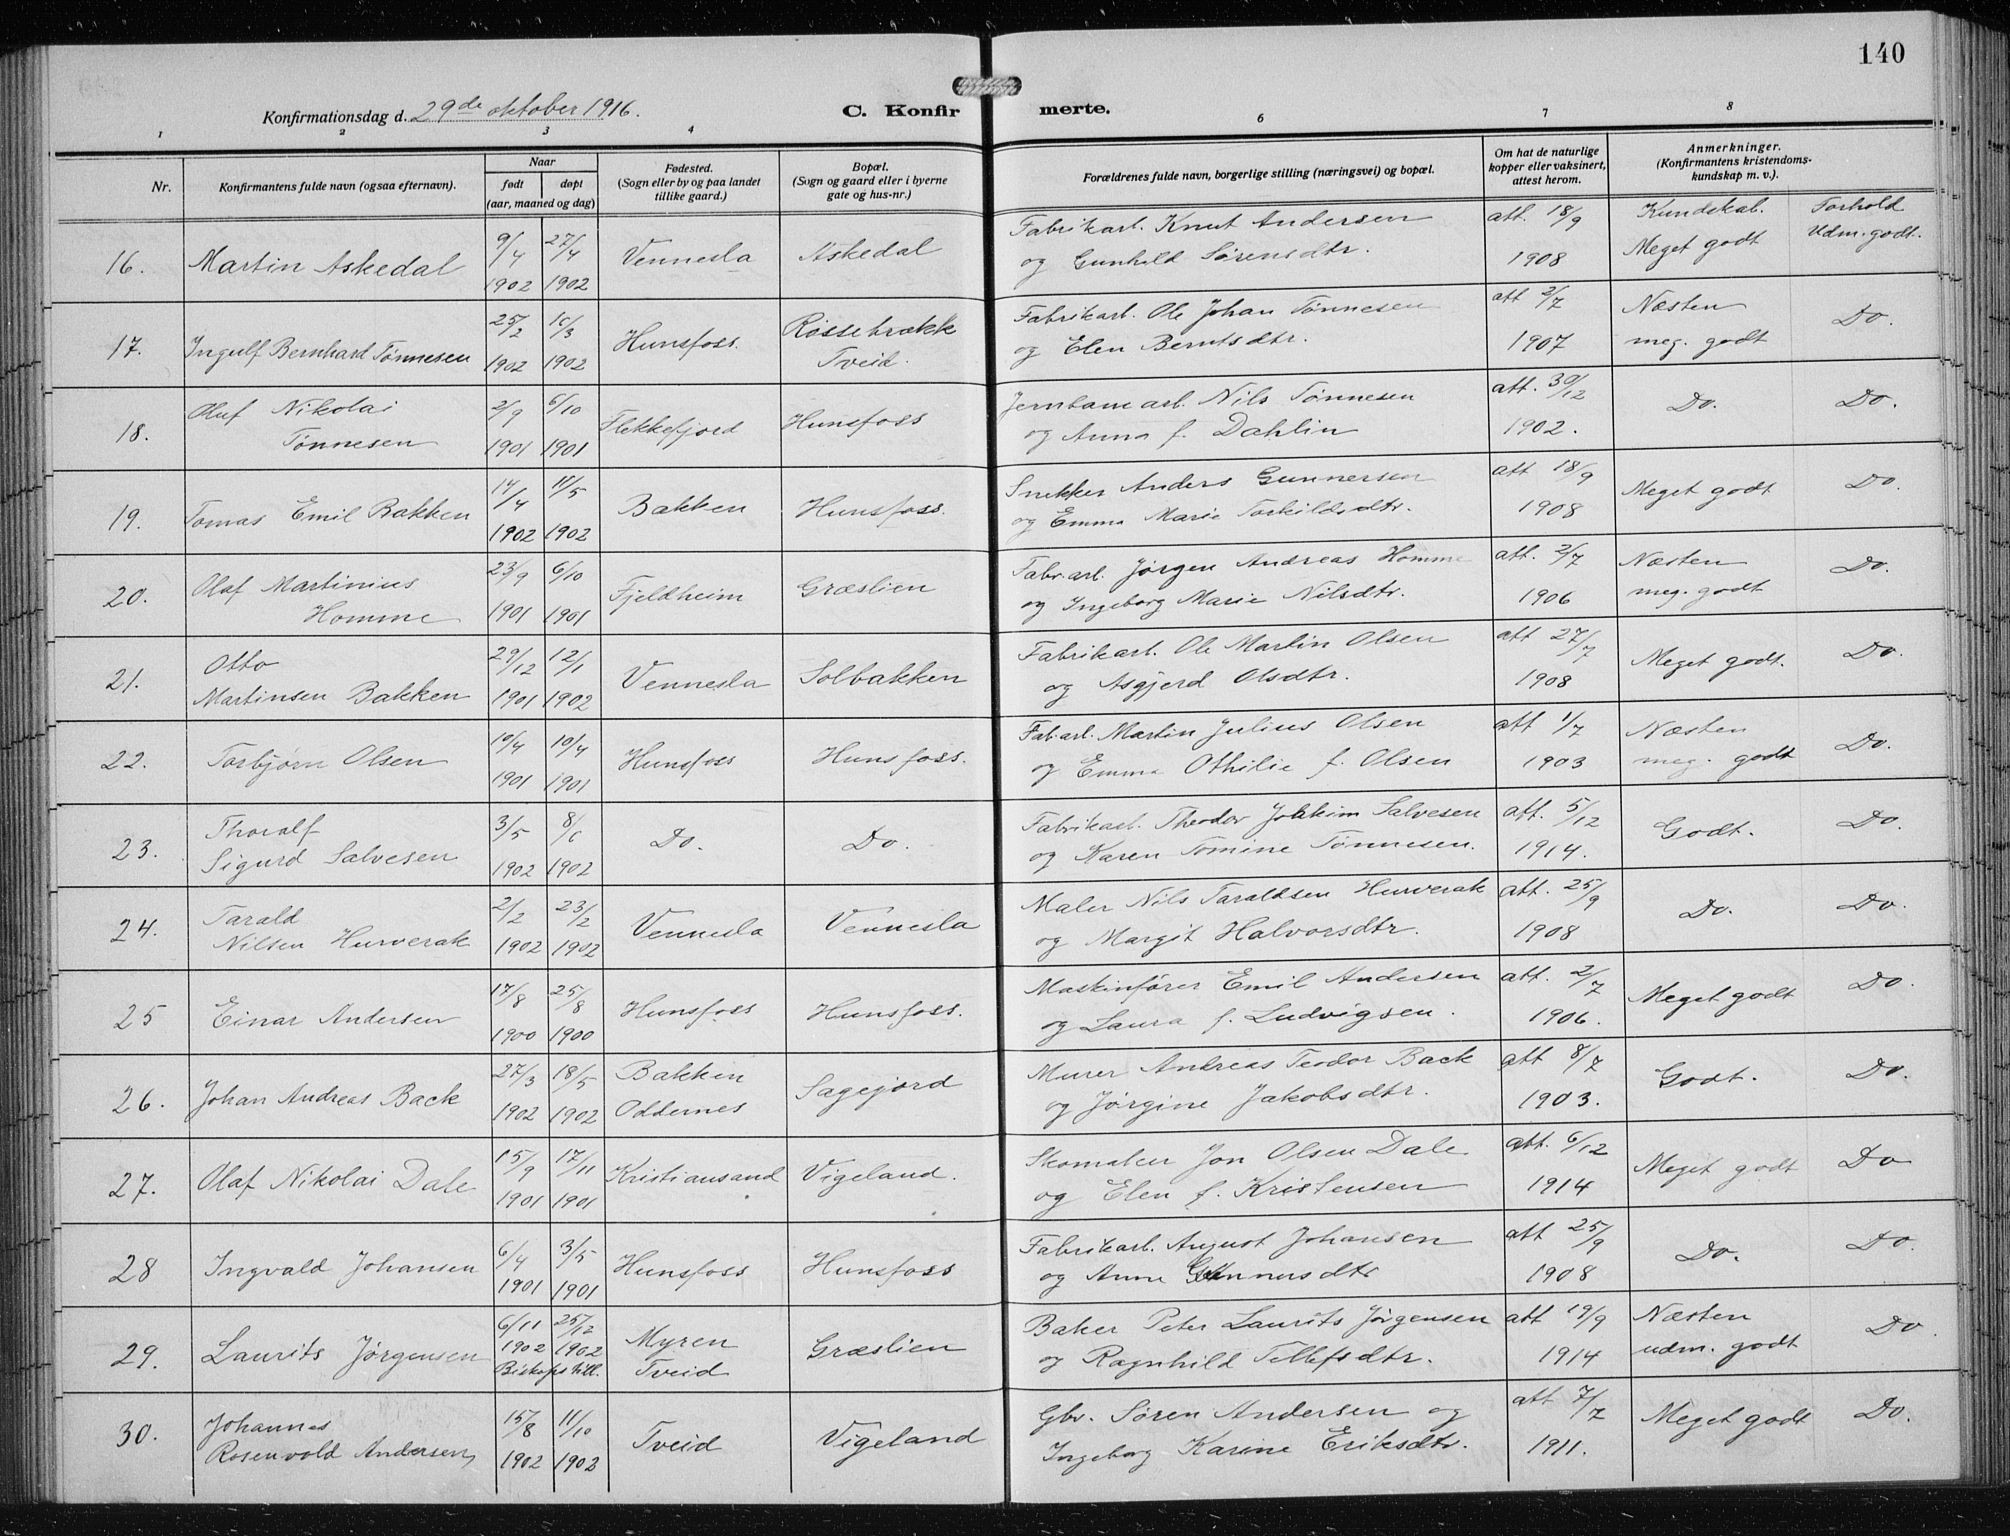 140
Konfirmationsdag d. 29de oktober 1916.
C. Konfirmerte.
1 2 3 4 6 7 8
Nr.
Konfirmantens fulde navn (ogsaa efternavn).
Naar
født døpt
(aar, maaned og dag)
Fødested.
(Sogn eller by og paa landet
tillike gaard.)
Bopæl.
(Sogn og gaard eller i byerne
gate og hus-nr.)
Forældrenes fulde navn, borgerlige stilling (næringsvei) og bopæl.
Om hat de naturlige
kopper eller vaksinert,
attest herom.
Anmerkninger.
(Konfirmantens kristendoms-
kundskap m. v.).
Kundskab. Forhold
16. Martin Askedal 9/4 1902 27/4 1902 Vennesla Askedal
Fabrikarb. Knut Andersen
og Gunhild Sørensdtr.
att. 18/9 1908 Meget godt Udm. godt.
17. Ingulf Bernhard Tønnesen 25/2 1902 /3 1902 Hunsfoss. Røssebrækk
Tveid.
Fabrikarb. Ole Johan Tønnesen
og Elen Berntsdtr.
att 2/7 1907 Næsten
meg. godt Do.
18. Oluf Nikolai
Tønnesen 2/9 1901 6/10 1901 Flekkefjord Hunsfoss
Jernbanearb. Nils Tønnesen
og Anna f. Dahlin
att. 30/12 1902. Do. Do.
19. Tomas Emil Bakken 14/4 1902 11/5 1902 Bakken Hunsfoss.
Snekker Anders Gunnersen
og Emma Marie Torkildsdtr.
att 18/9 1908 Meget godt Do.
20. Olaf Martinius
Homme 23/9 1901 6/10 1901 Fjeldheim Græslien
Fabr.arb. Jørgen Andreas Homme
og Ingeborg Marie Nilsdtr.
att. 2/7 1906 Næsten
meg. godt Do.
21. Otto
Martinsen Bakken 29/12 1901 12/1 1902 Vennesla Solbakken
Fabrikarb. Ole Martin Olsen
og Asgjerd Olsdtr.
att 27/7 1908 Meget godt. Do.
22. Torbjørn Olsen 10/4 1901 10/4 1901 Hunsfoss Hunsfoss.
Fab.arb. Martin Julius Olsen
og Emma Othilie f. Olsen
att 1/7 1903 Næsten
meg. godt Do.
23. Thoralf
Sigurd Salvesen 3/5 1902 8/6 1902 Do. Do.
Fabrikarb. Theodor Jokkim Salvesen
og Karen Tomine Tønnesen.
att. 5/12 1914. Godt. Do.
24. Tarald
Nilsen Hurverak 2/2 1902 23/2 1902 Vennesla Vennesla
Maler Nils Taraldsen Hurverak
og Margit Halvorsdtr.
att. 25/9 1908 Do. Do.
25 Einar Andersen 17/8 1900 25/8 1900 Hunsfoss Hunsfoss.
Maskinfører Emil Andersen
og Laura f. Ludvigsen.
att. 2/7 1906. Meget godt Do.
26. Johan Andreas Back 27/3 1902 18/5 1902 Bakken
Oddernes Sagejord
Murer Andreas Teodor Back
og Jørgine Jakobsdtr.
att 8/7 1903. Godt. Do.
27. Olaf Nikolai Dale 15/9 1901 17/11 1901 Kristiansand Vigeland.
Skomaker Jon Olsen Dale
og Elen f. Kristensen
att. 6/12 1914 Meget godt Do
28 Ingvald Johansen 6/4 1901 3/5 1901 Hunsfoss Hunsfoss
Fabrikarb. August Johansen
og Anne Gunnersdtr
att 25/9 1908 Do. Do.
29. Laurits Jørgensen 6/11 1902 25/12 1902
Biskops till. Myren
Tveid Græslien
Baker Peter Laurits Jørgensen
og Ragnhild Tellefsdtr.
att 19/9 1914 Næsten
udm. godt Do.
30. Johannes
Rosenvold Andersen 15/8 1902 11/10 1902 Tveid Vigeland
Gbr. Søren Andersen og
Ingeborg Karine Eriksdtr.
att 7/7 1911. Meget godt Do.